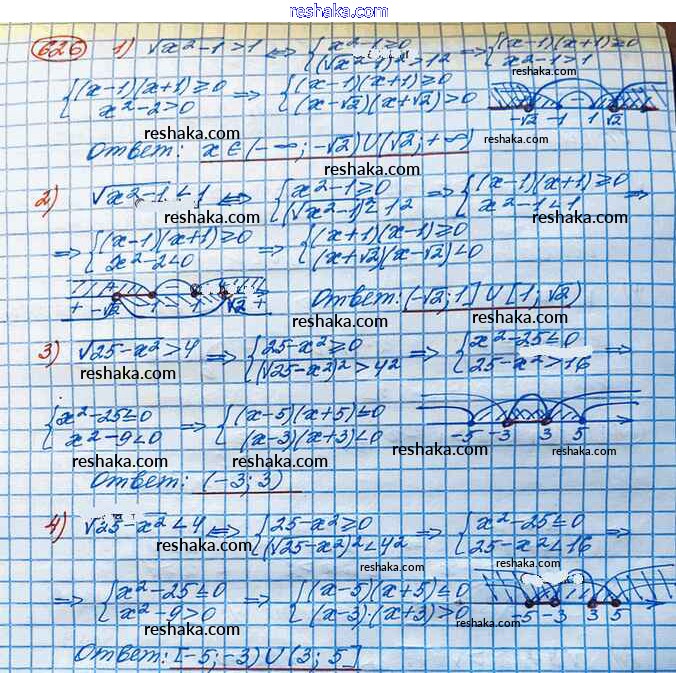 reshaka.com
626 1) √x²-1 > 1 ⇔ {x²-1≥0 {(√x²-1)²>1² ⇒ {(x-1)(x+1)≥0 {x²-1>1
reshaka.com
{(x-1)(x+1)≥0 {x²-2>0 ⇒ {(x-1)(x+1)≥0 {(x-√2)(x+√2)>0
-√2 -1 1 √2
reshaka.com reshaka.com
Ответ: x∈(-∞; -√2)∪(√2; +∞)
2) √x²-1 < 1 ⇔ {x²-1≥0 {(√x²-1)²<1² ⇒ {(x-1)(x+1)≥0 {x²-1<1 ⇒
reshaka.com reshaka.com reshaka.com
⇒ {(x-1)(x+1)≥0 {x²-2<0 ⇒ {(x+1)(x-1)≥0 {(x+√2)(x-√2)<0
reshaka.com reshaka.com
+ -√2 -1 - 1 √2 +
Ответ: (-√2; 1] ∪ [1; √2)
reshaka.com reshaka.com
3) √25-x² > 4 ⇒ {25-x²≥0 {(√25-x²)²>4² ⇒ {x²-25≤0 {25-x²>16 ⇒
reshaka.com reshaka.com reshaka.com
{x²-25≤0 {x²-9<0 ⇒ {(x-5)(x+5)≤0 {(x-3)(x+3)<0
-5 -3 3 5
reshaka.com reshaka.com reshaka.com
Ответ: (-3; 3)
4) √25-x² < 4 ⇔ {25-x²≥0 {(√25-x²)²<4² ⇒ {x²-25≤0 {25-x²<16 ⇒
reshaka.com reshaka.com reshaka.com
⇒ {x²-25≤0 {x²-9>0 ⇒ {(x-5)(x+5)≤0 {(x-3)·(x+3)>0
-5 -3 3 5
reshaka.com reshaka.com reshaka.com
Ответ: [-5; -3) ∪ (3; 5]